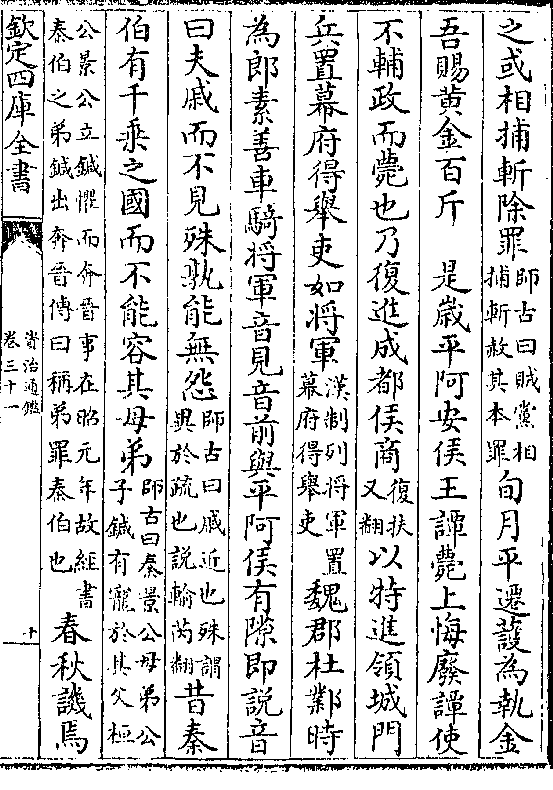 之或相捕斬除罪師古曰賊黨相捕斬赦其本罪旬月平遷護為執金
吾賜黄金百斤　是歲平阿安侯王譚薨上悔廢譚使
不輔政而薨也乃復進成都侯商復扶又翻以特進領城門
兵置幕府得舉吏如將軍漢制列將軍置幕府得舉吏魏郡杜鄴時
為郎素善車騎將軍音見音前與平阿侯有隙即説音
曰夫戚而不見殊孰能無怨師古曰戚近也殊謂異於疏也説輸芮翻昔秦
伯有千乘之國而不能容其母弟師古曰秦景公母弟公子鍼有寵於其父桓
公景公立鍼懼而奔晉事在昭元年故經書秦伯之弟鍼出奔晉傳曰稱弟罪秦伯也春秋譏焉
欽定四庫全書
資治通鑑
卷三十一
十